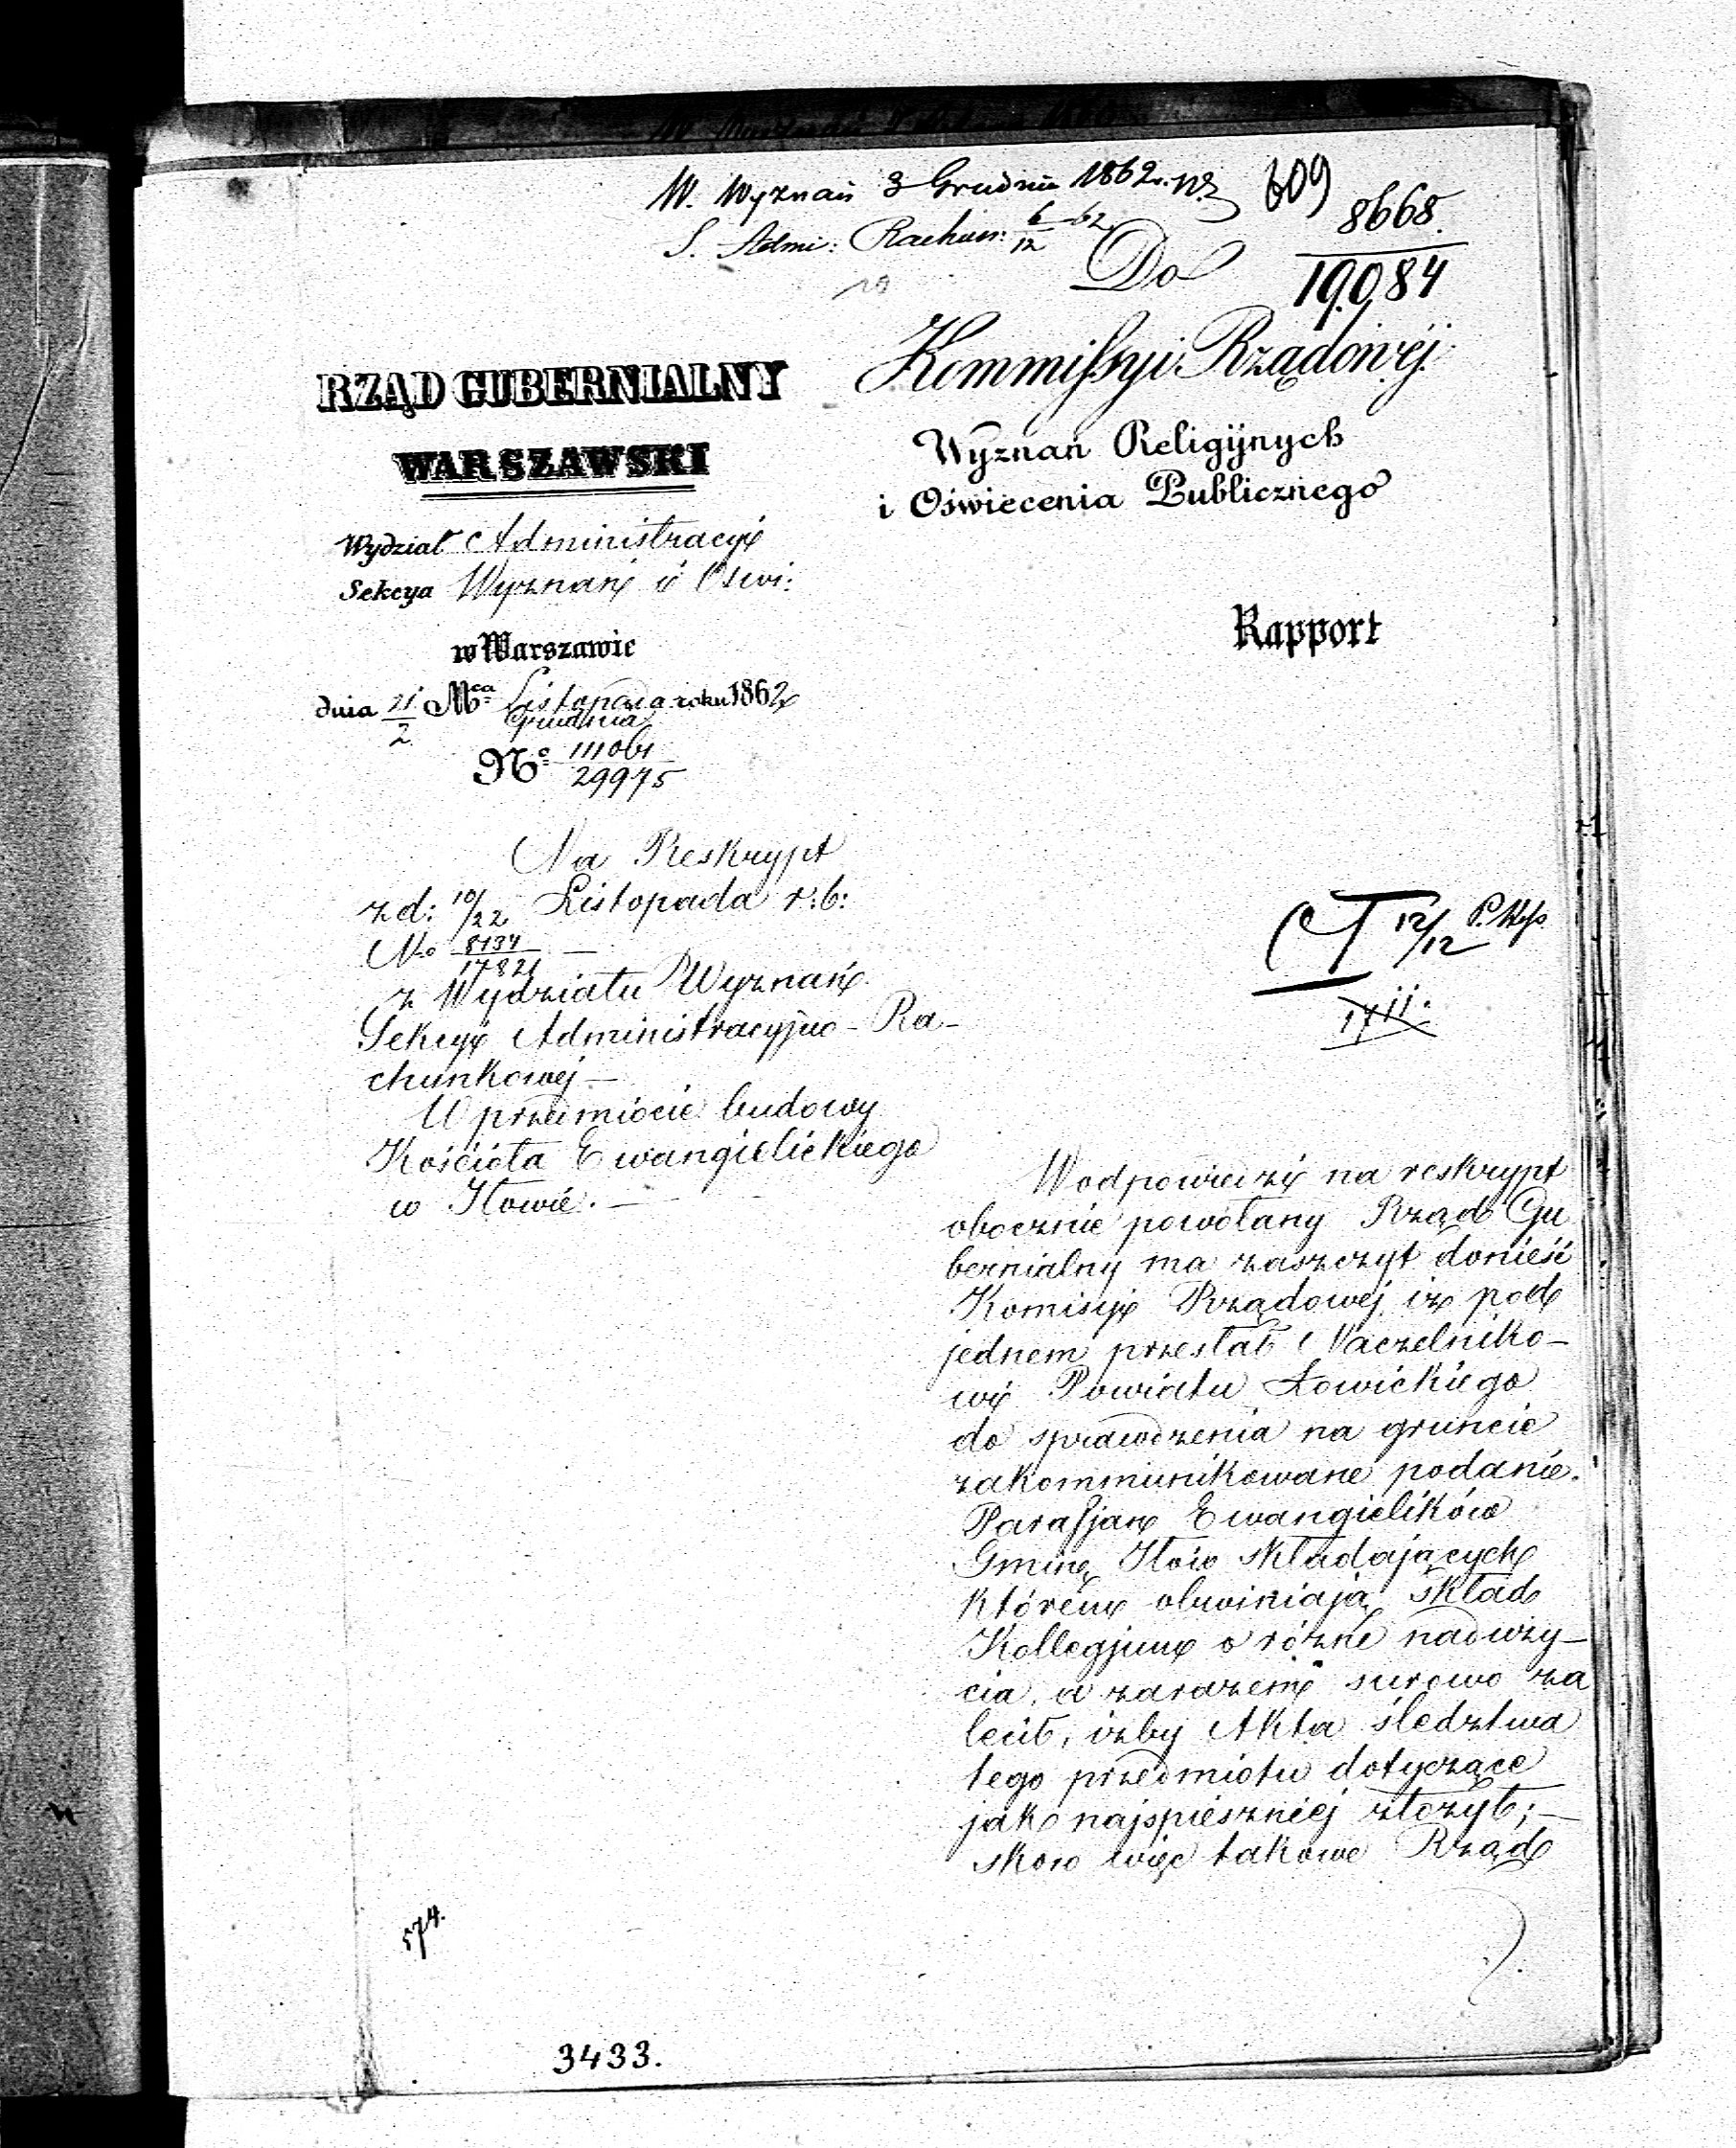 W. Wyznań 3 Grudnia 1862 r. N
609
S. Admi: Rachun: 6/12 62
8668.
19084
Do
Kommissyi Rządowéj
Wyznań Religijnych
i Oświecenia Publicznego
Rapport
RZĄD GUBERNIALNY
WARSZAWSKI
Wydział Administracyi
Sekcya Wyznań i Oświ:
w Warszawie
dnia 21/2 Mca Listopada/Grudnia roku 1862
No 111061/29975
Na Reskrypt
z d: 10/22 Listopada r: b:
No 8134/17821 —
z Wydziału Wyznań
Sekcyi Administracyjno-Ra-
chunkowej —
W przedmiocie budowy
Kościoła Ewangielickiego
w Iłowie. —
12/12
W odpowiedzi na reskrypt
obocznie powołany Rząd Gu
bernialny ma zaszczyt donieść
Komisyi Rządowéj, iż pod
jednem przesłał Naczelniko-
wi Powiatu Łowickiego
do sprawdzenia na gruncie
zakommunikowane podanie
Parafjan Ewangielików
Gminę Iłów składających
którem obwiniają skład
Kollegjum o różne nadwży-
cia, a zarazem surowo za
lecił, iżby Akta śledztwa
tego przedmiotu dotyczące
jak najspieszniej złożył; —
skoro więc takowe Rząd
574.
3433.